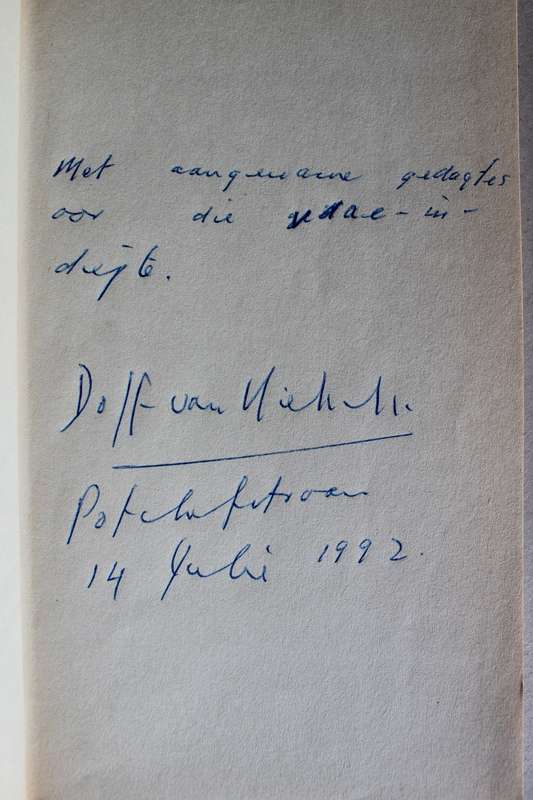 Met aangename gedagtes
oor die dae-in-
diepte.
Dolf van Niekerk.
Potchefstroom
14 Julie 1992.